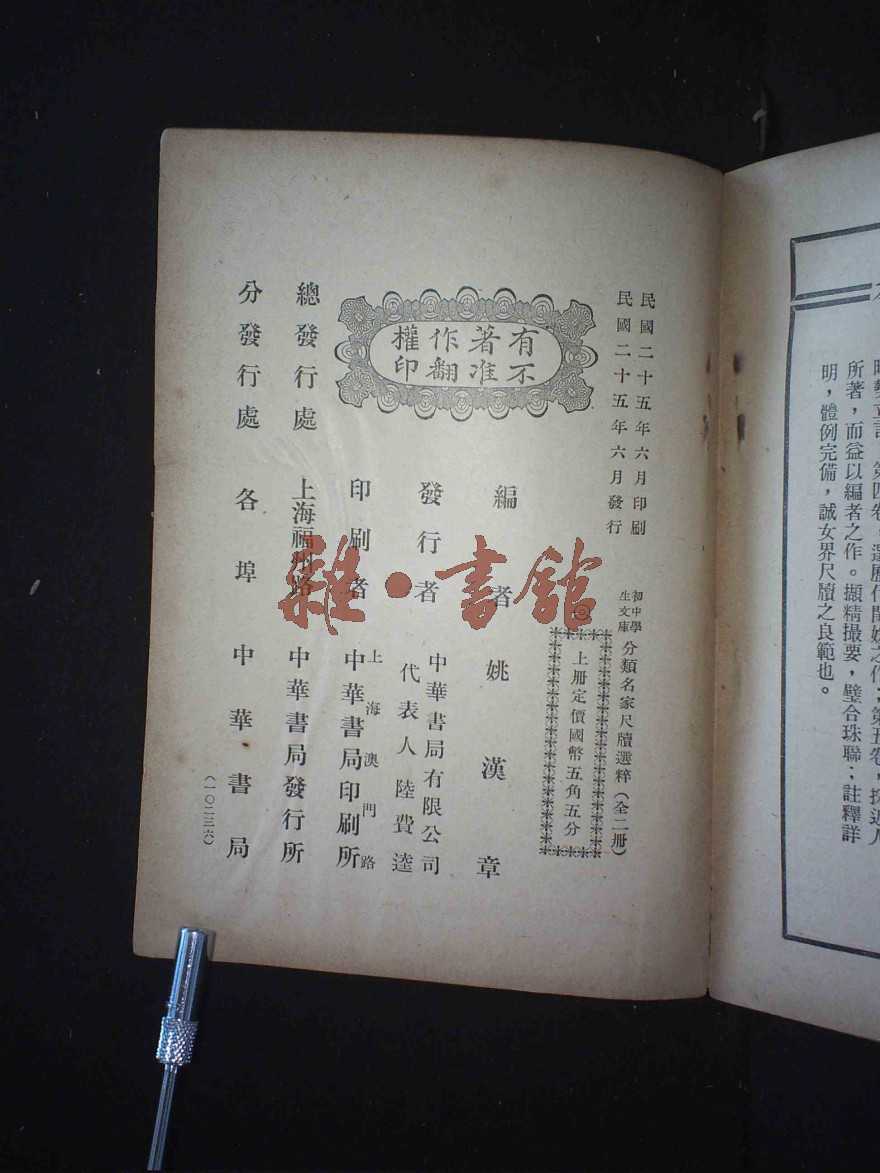 明，體例完備，誠女界尺牘之良範也。
民國二十五年六月印刷
民國二十五年六月發行
初中學
生文庫
分類名家尺牘選粹（全二冊）
上册定價國幣五角五分
有著作權
不准翻印
編者 姚漢章
發行者 中華書局有限公司
代表人 陸費逵
印刷者 上海澳門路
中華書局印刷所
總發行處 上海福州路 中華書局發行所
分發行處 各埠 中華書局
（一〇二三六）
雜·書館